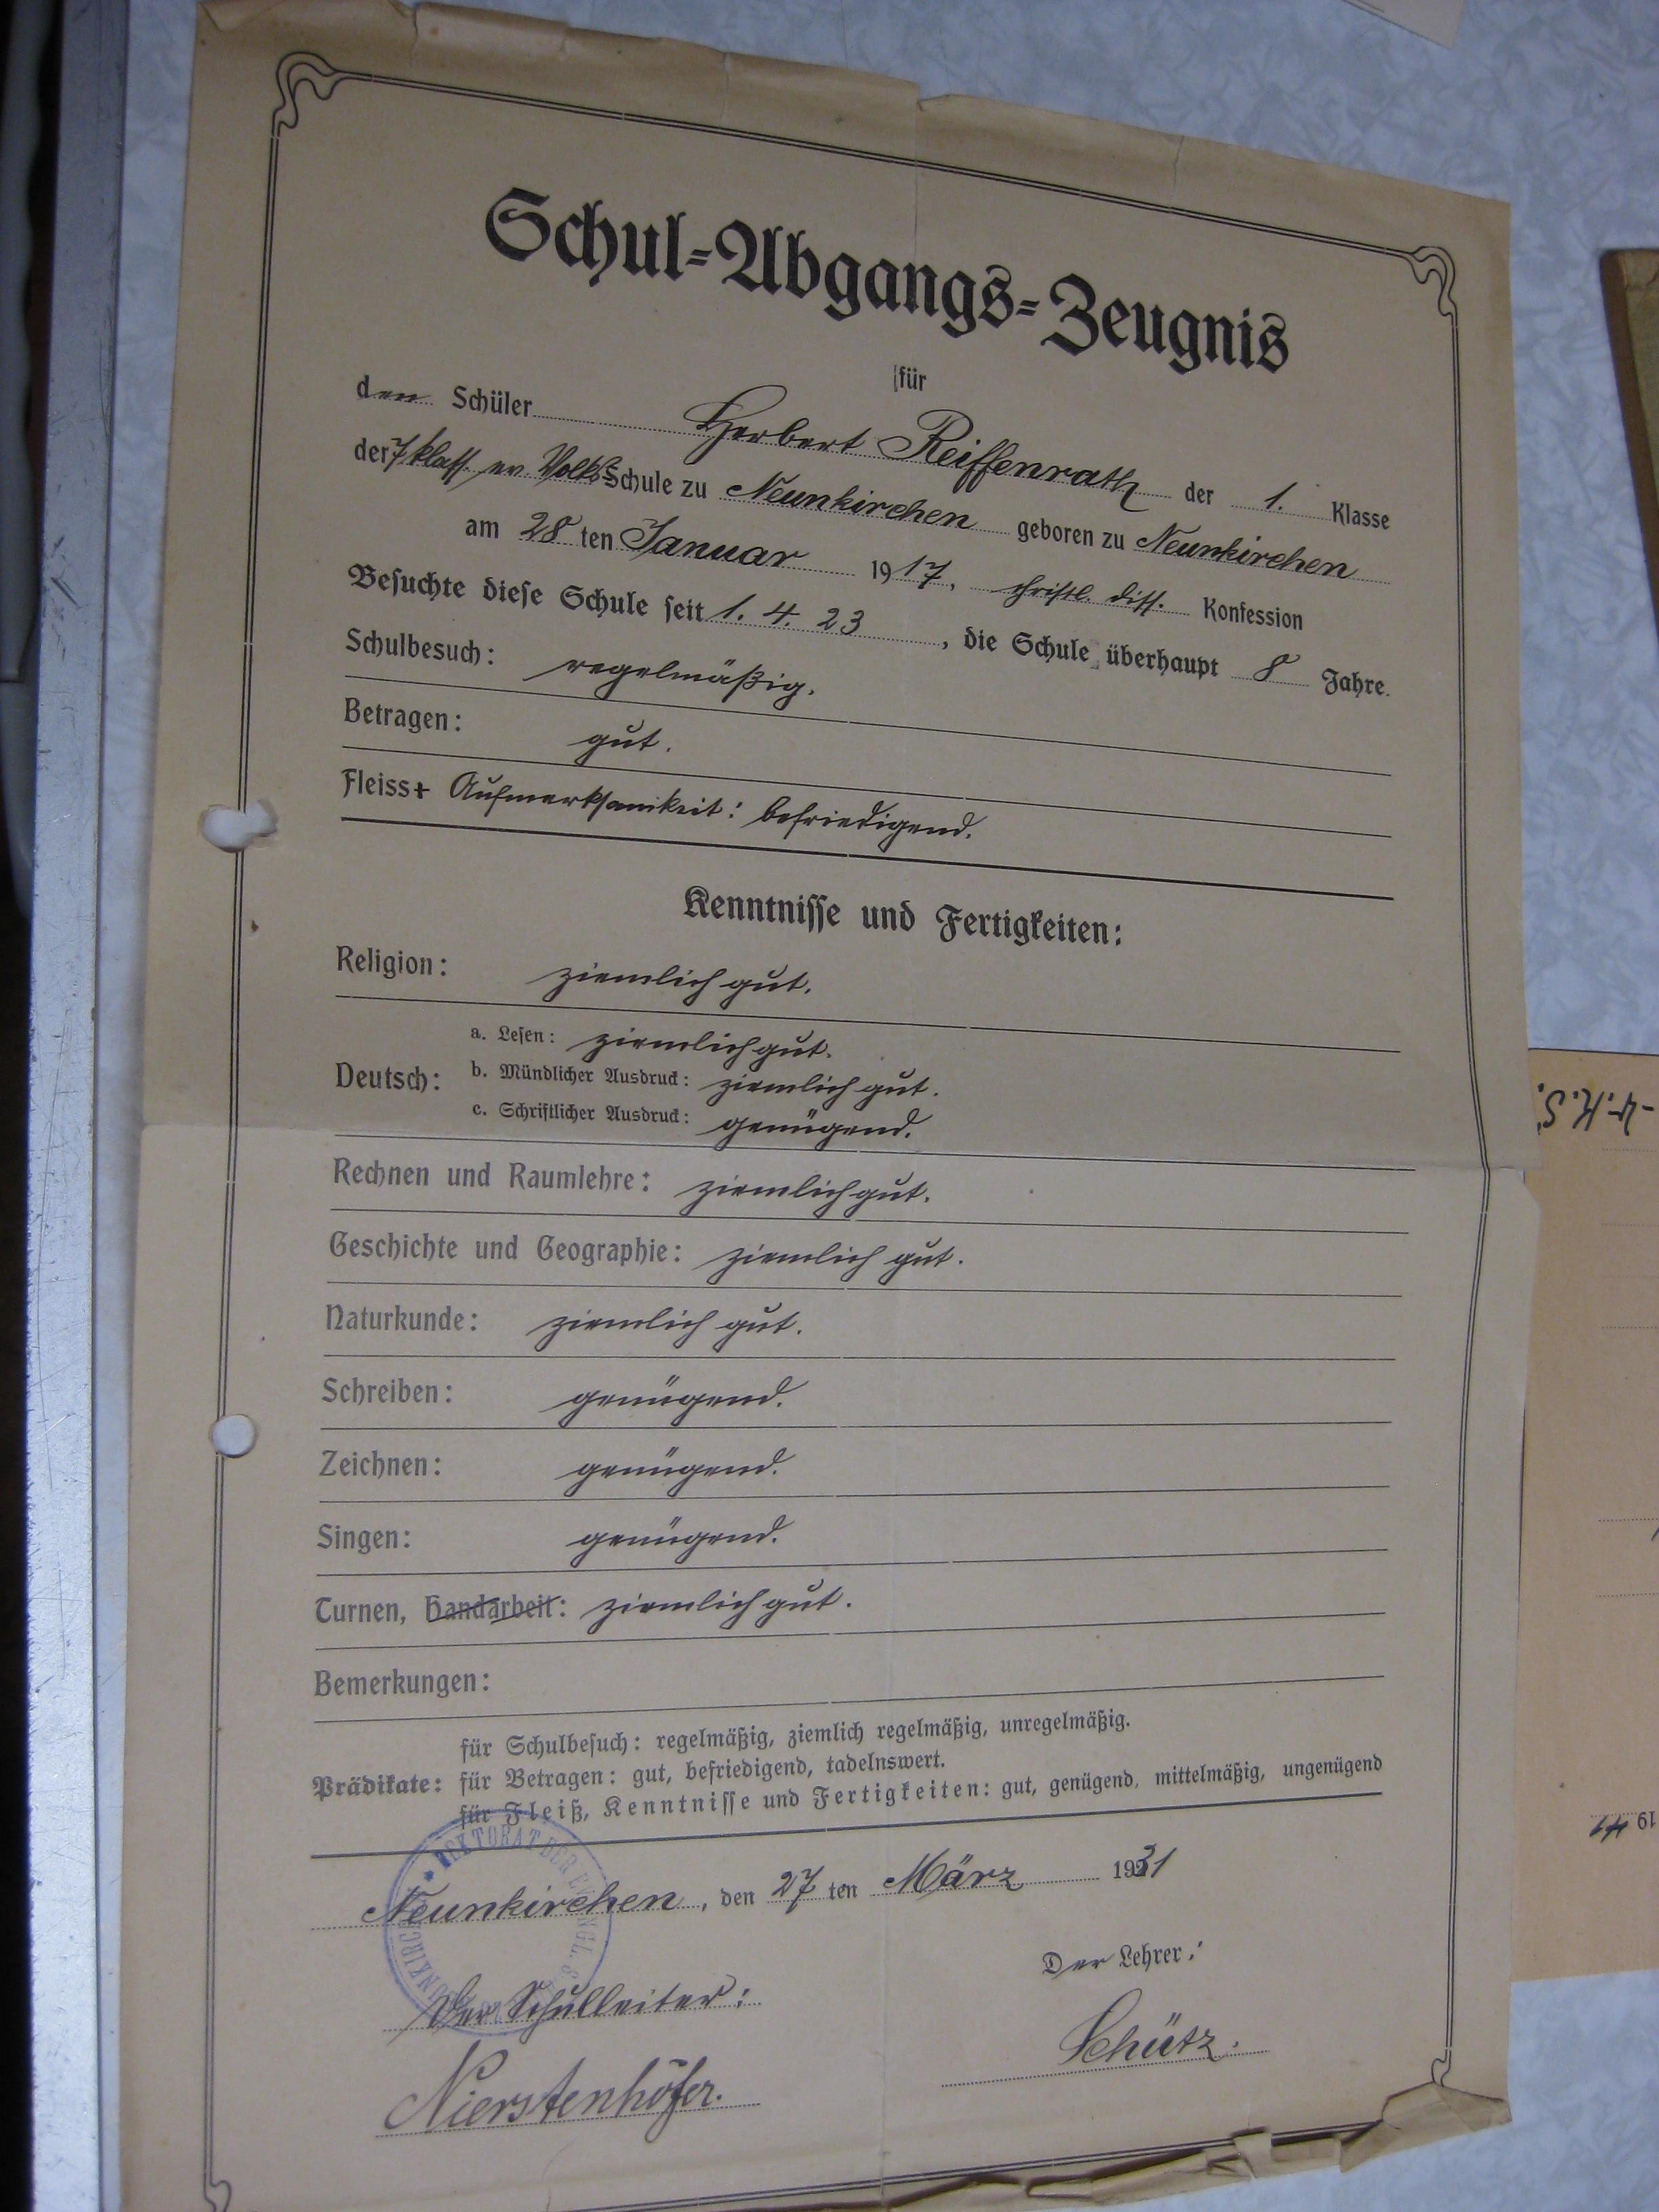 Schul-Abgangs-Zeugnis
für
den Schüler Herbert Reiffenrath der 1. Klasse
der 7 klass. ev. Volks Schule zu Neunkirchen geboren zu Neunkirchen
am 28 ten Januar 1917, christl. diss. Konfession
Besuchte diese Schule seit 1. 4. 23, die Schule überhaupt 8 Jahre.
Schulbesuch: regelmäßig.
Betragen: gut.
Fleiss + Aufmerksamkeit: befriedigend.
Kenntnisse und Fertigkeiten:
Religion: ziemlich gut.
Deutsch:
a. Lesen: ziemlich gut.
b. Mündlicher Ausdruck: ziemlich gut.
c. Schriftlicher Ausdruck: genügend.
Rechnen und Raumlehre: ziemlich gut.
Geschichte und Geographie: ziemlich gut.
Naturkunde: ziemlich gut.
Schreiben: genügend.
Zeichnen: genügend.
Singen: genügend.
Turnen, Handarbeit: ziemlich gut.
Bemerkungen:
Prädikate:
für Schulbesuch: regelmäßig, ziemlich regelmäßig, unregelmäßig.
für Betragen: gut, befriedigend, tadelnswert.
für Fleiß, Kenntnisse und Fertigkeiten: gut, genügend, mittelmäßig, ungenügend
Neunkirchen, den 27 ten März 1931
Der Schulleiter:
Der Lehrer:
Nierstenhöfer.
Schütz.